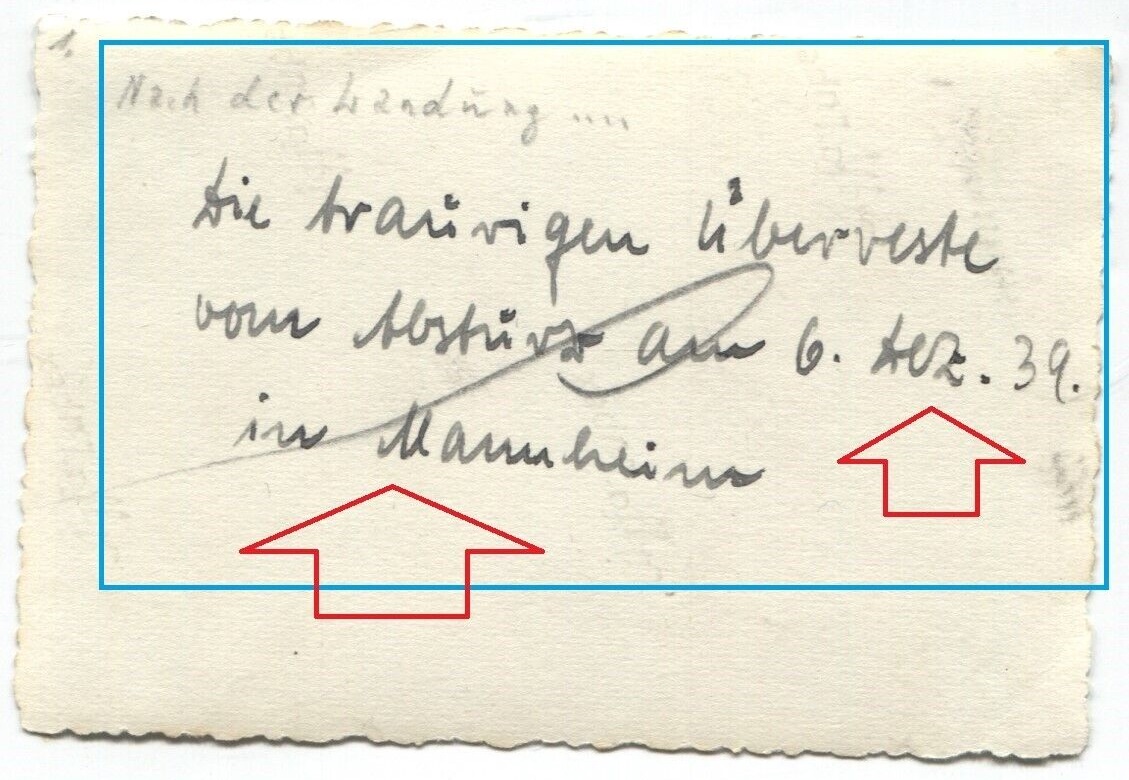 1.
Nach der Landung ....
Die traurigen Überreste
vom Absturz am 6. Dez. 39.
in Mannheim